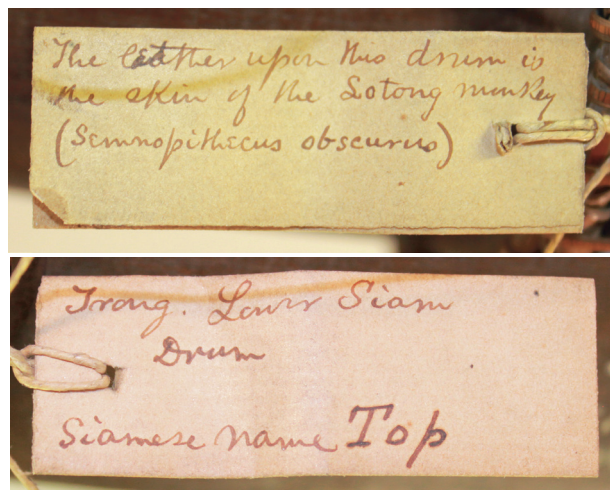 The leather upon this drum is
the skin of the Lotong monkey
(Semnopithecus obscurus)
Trong. Lower Siam
Drum
Siamese name Top